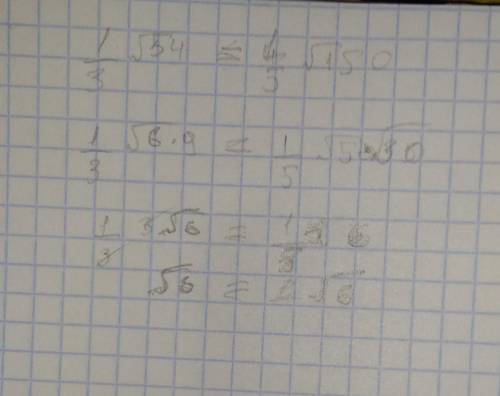 1/3 √54 = 1/5 √150
1/3 √6·9 = 1/5 √5·√30
1/3 3√6 = 1/5 5 6
√6 = √6